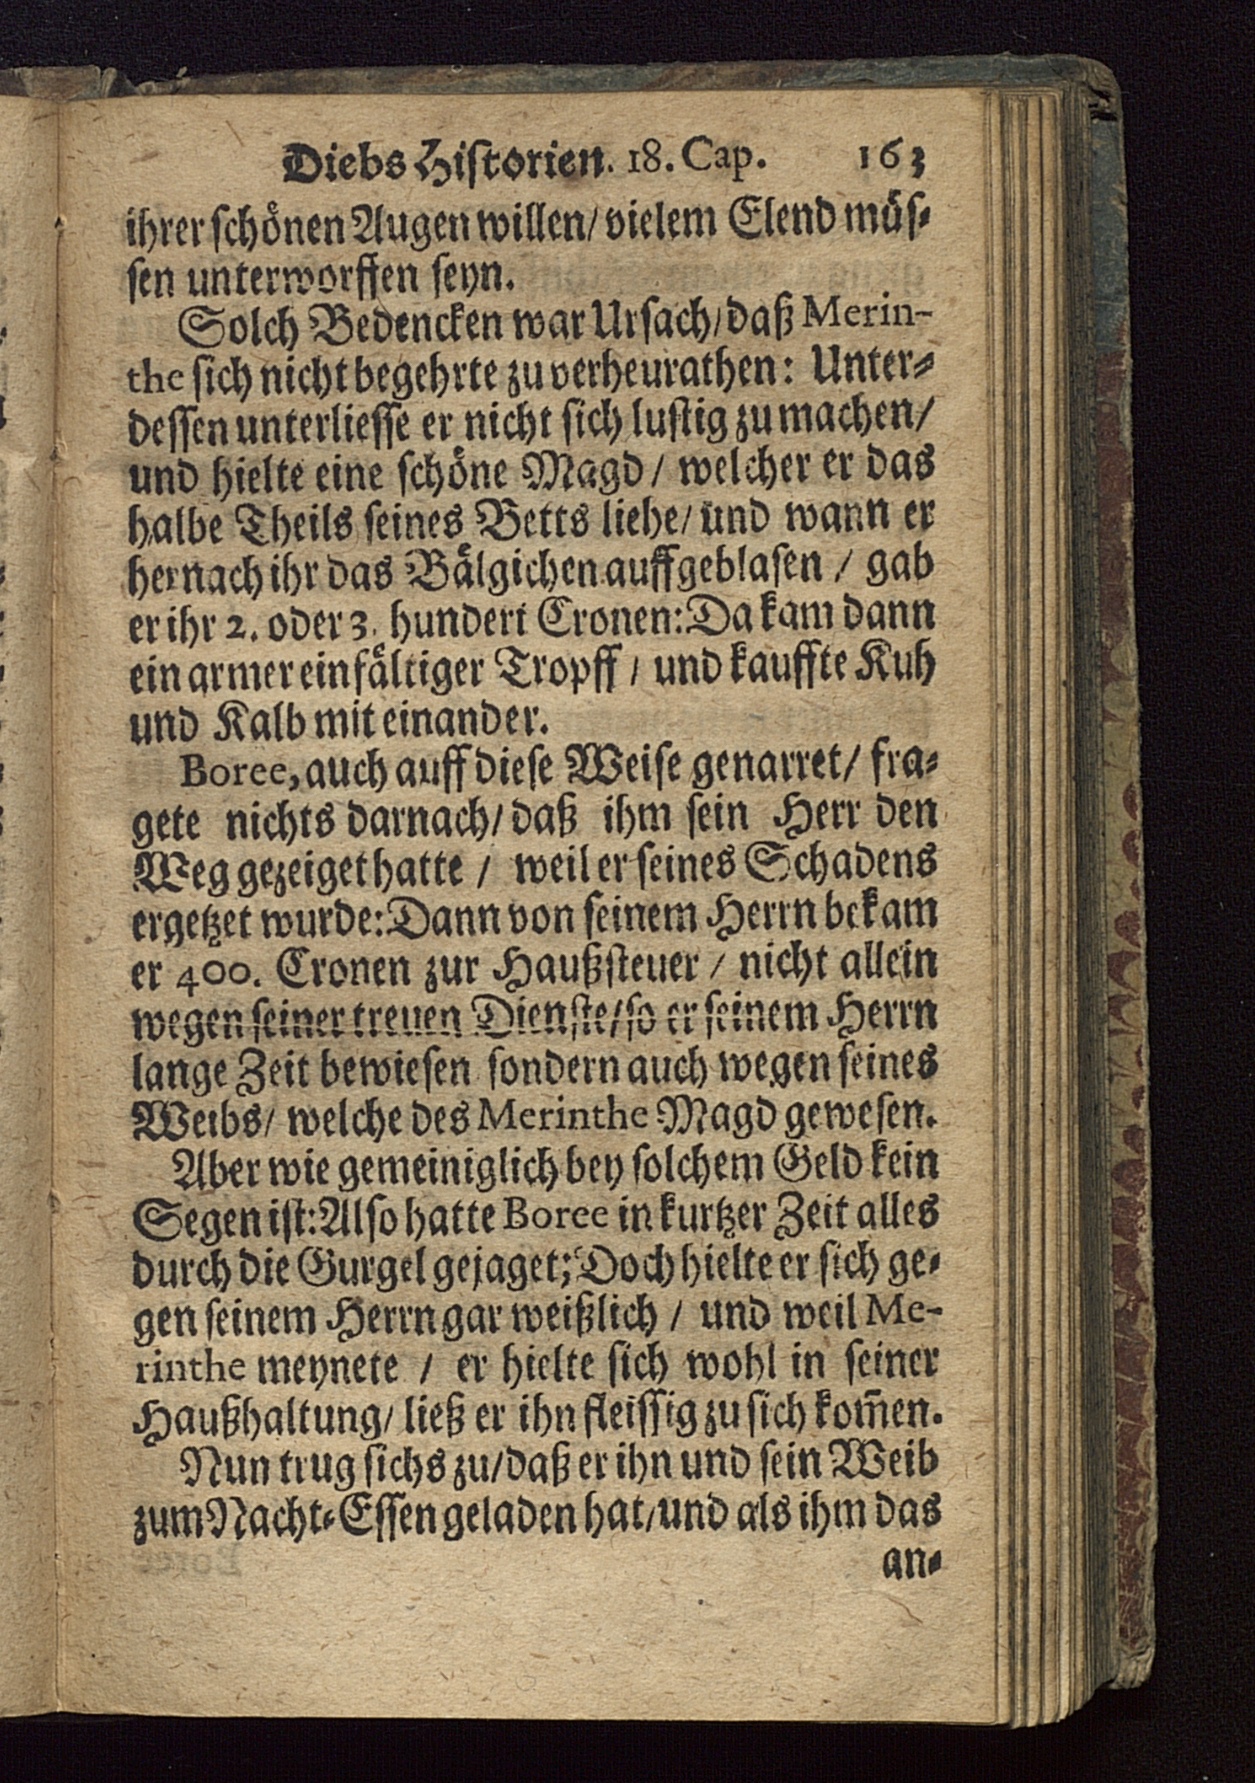 Diebs Historien. 18. Cap. 163
ihrer schönen Augen willen/ vielem Elend müs-
sen unterworffen seyn.
Solch Bedencken war Ursach/ daß Merin-
the sich nicht begehrte zu verheurathen: Unter-
dessen unterliesse er nicht sich lustig zu machen/
und hielte eine schöne Magd / welcher er das
halbe Theils seines Betts liehe/ und wann er
hernach ihr das Bälgichen auffgeblasen / gab
er ihr 2. oder 3. hundert Cronen: Da kam dann
ein armer einfältiger Tropff / und kauffte Kuh
und Kalb mit einander.
Boree, auch auff diese Weise genarret/ fra-
gete nichts darnach/ daß ihm sein Herr den
Weg gezeiget hatte / weil er seines Schadens
ergetzet wurde: Dann von seinem Herrn bekam
er 400. Cronen zur Haußsteuer / nicht allein
wegen seiner treuen Dienste/ so er seinem Herrn
lange Zeit bewiesen sondern auch wegen seines
Weibs/ welche des Merinthe Magd gewesen.
Aber wie gemeiniglich bey solchem Geld kein
Segen ist: Also hatte Boree in kurtzer Zeit alles
durch die Gurgel gejaget; Doch hielte er sich ge-
gen seinem Herrn gar weißlich / und weil Me-
rinthe meynete / er hielte sich wohl in seiner
Haußhaltung/ ließ er ihn fleissig zu sich kom̃en.
Nun trug sichs zu/ daß er ihn und sein Weib
zum Nacht-Essen geladen hat/ und als ihm das
an-